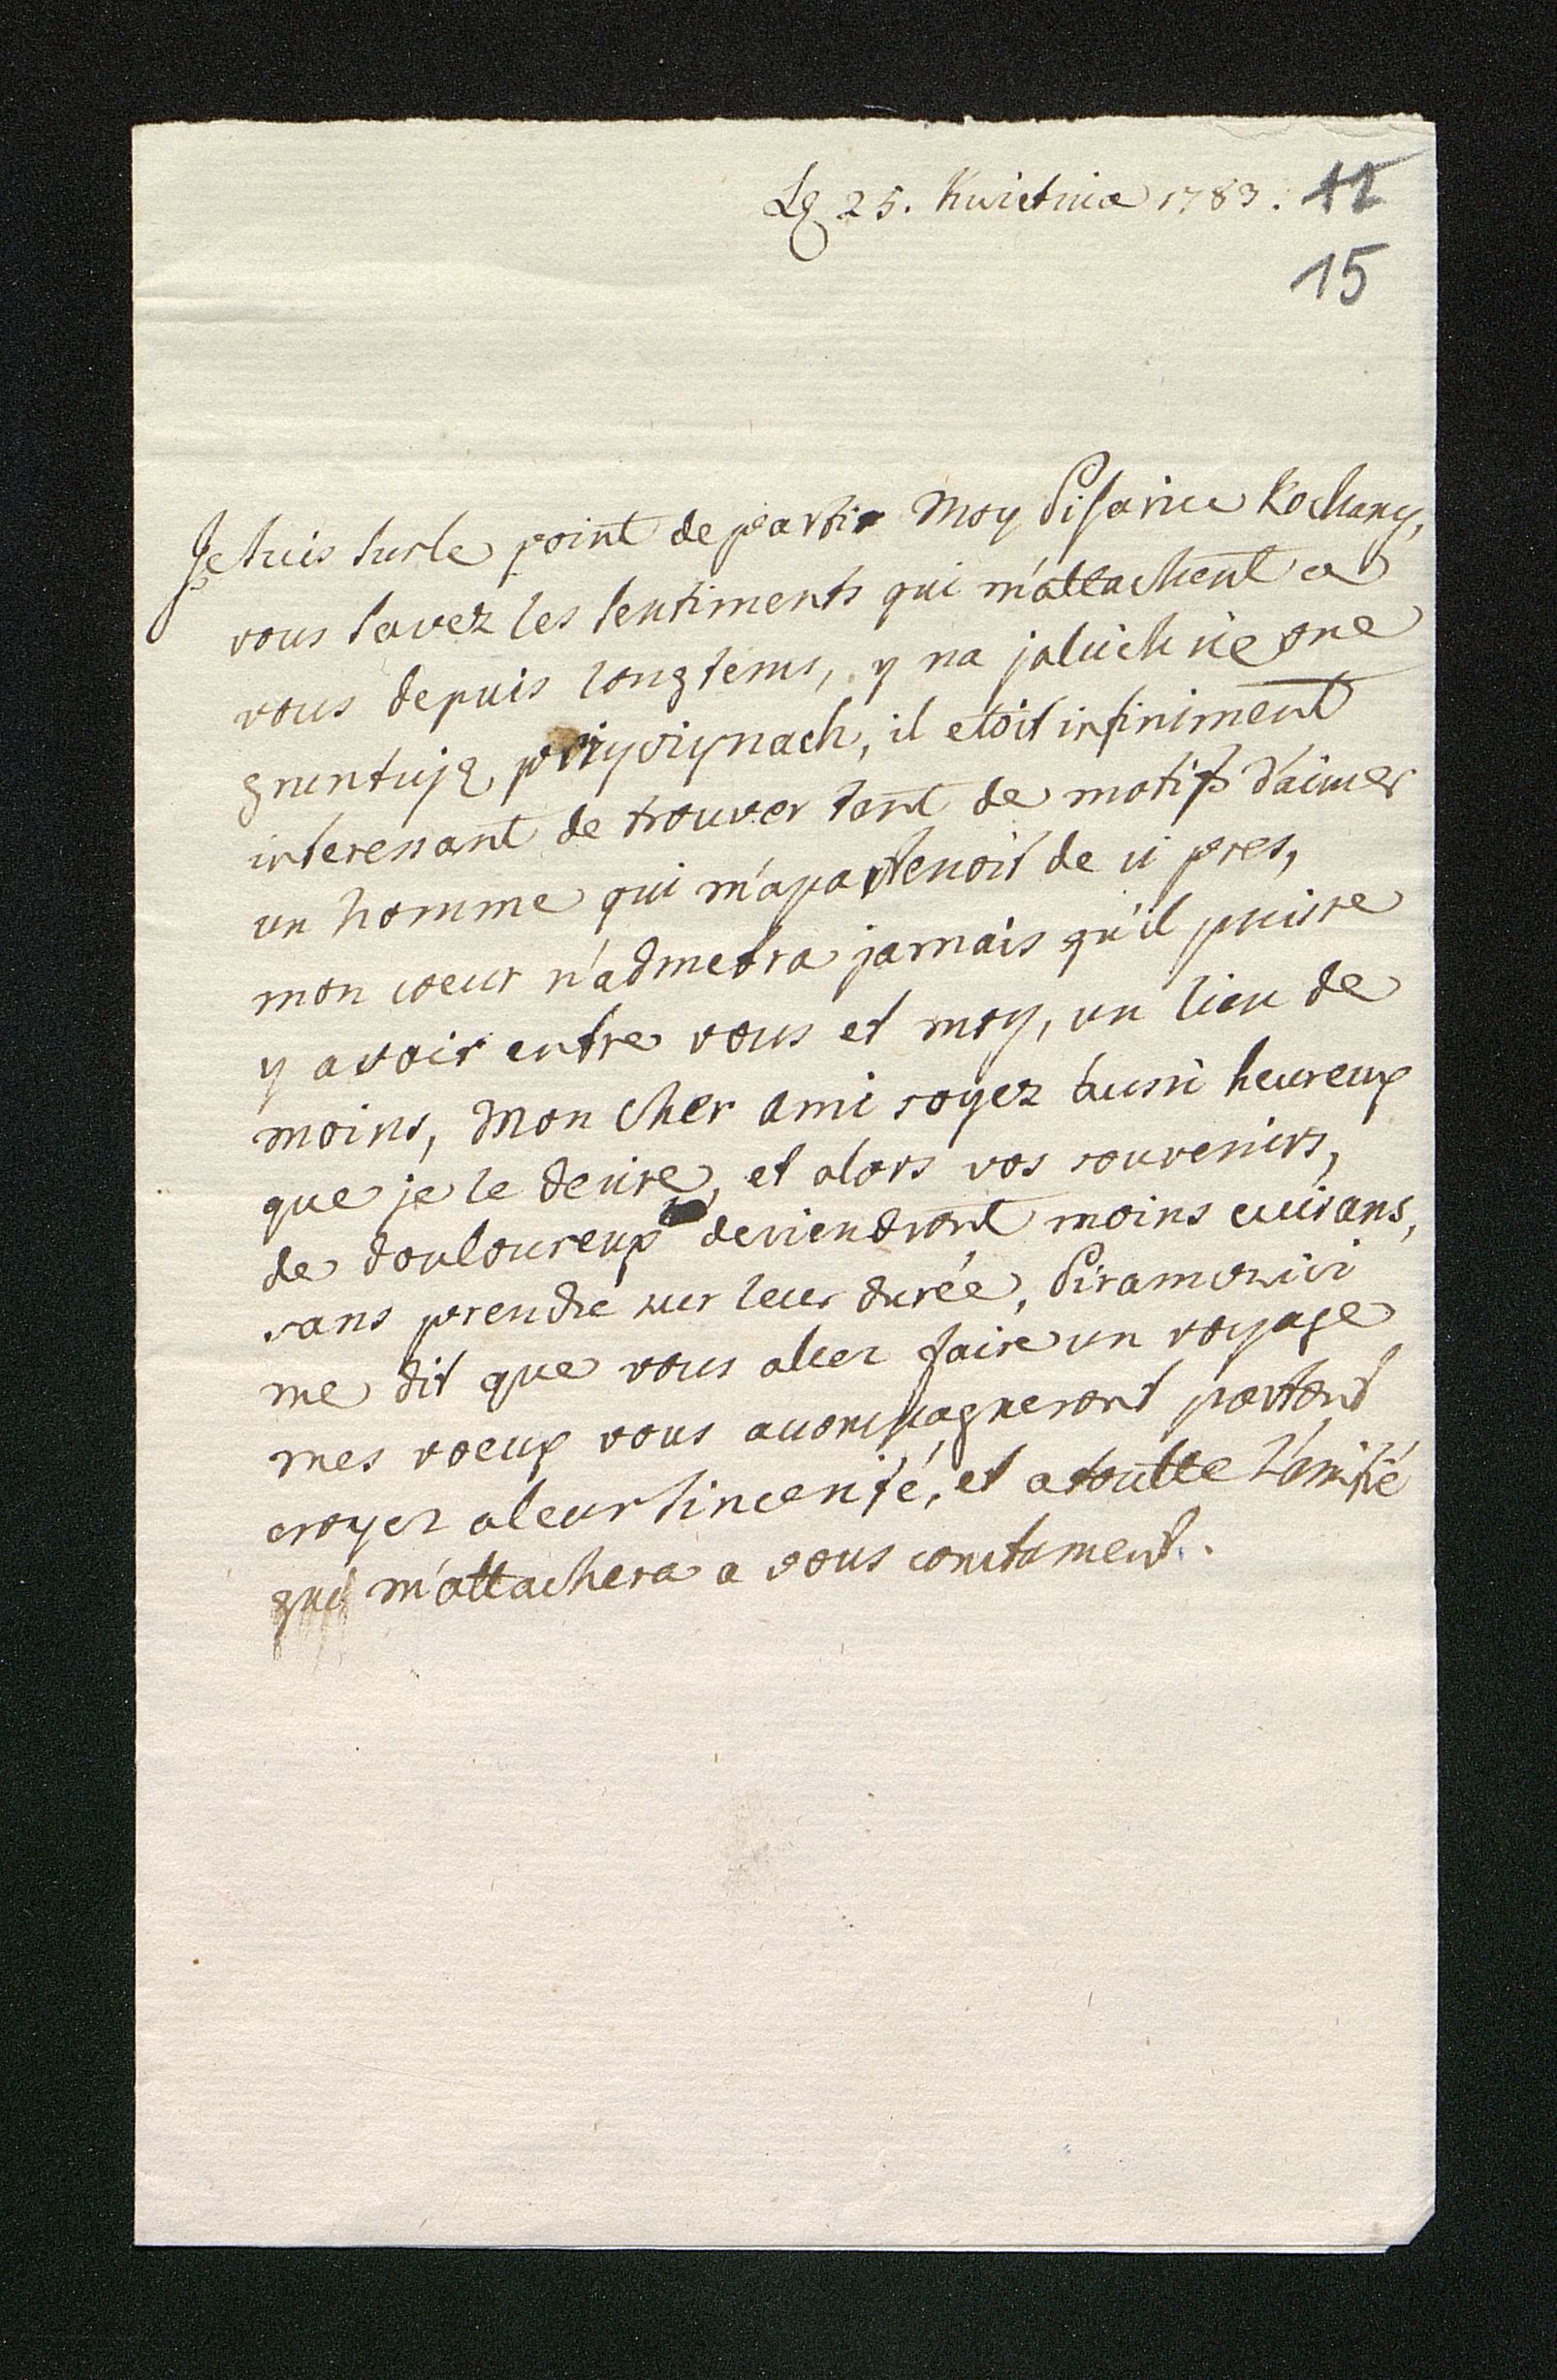 Le 25. Kwietnia 1783. 12
15
Je suis sur le point de partir Moy Pisarzu Kochany,
vous savez les sentiments qui m'attachent a
vous depuis longtems, y na jakich sie one
gruntują przyczynach, il etoit infiniment
interessant de trouver tant de motifs d'aimer
un homme qui m'apartenoit de si pres,
mon coeur n'admetra jamais qu'il puisse
y avoir entre vous et moy, un lien de
moins, Mon cher ami soyez aussi heureux
que je le desire, et alors vos souvenirs,
de douloureux deviendront moins cuisans,
sans prendre sur leur durée, Piramowicz
me dit que vous allez faire un voyage
mes voeux vous accompagneront partout
croyez a leur sincerité, et a toutte l'amitié
qui m'attachera a vous constament.